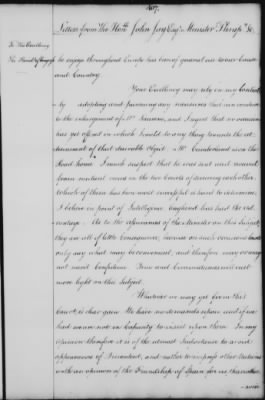 407.
Letter from the Honble John Jay Esqr Minister Plenipo &c
To His Excellency
The Presidt of Congress
he enjoys throughout Europe has been of general use to our Cause
and Country.
Your Excellency may rely on my
by adopting and pursuing any measures that may conduce
to the enlargement of Mr. Laurens, and I regret that no occasion
has yet offered in which I could do any thing towards the at-
tainment of that desirable object. Mr. Cumberland is on the
Road home. I much suspect that he was sent and received
from mutual views in the two Courts of deceiving each other.
Which of them has been most successful is hard to determine.
I believe in point of Intelligence England has had the ad-
vantage. As to the assurances of the Minister on this Subject,
they are all of little Consequence, because on such occasions Courts
only say what may be convenient, and therefore may or may
not merit Confidence. Time and Circumstances will cast
more light on this Subject.
Whatever we may get from this
Court is clear gain. We have no demands upon it and if we
had were not in Capacity to insist upon them. In my
opinion therefore it is of the utmost Importance to avoid
appearances of Discontent, and rather to impress other Nations
with an opinion of the Friendship of Spain for us, than other-